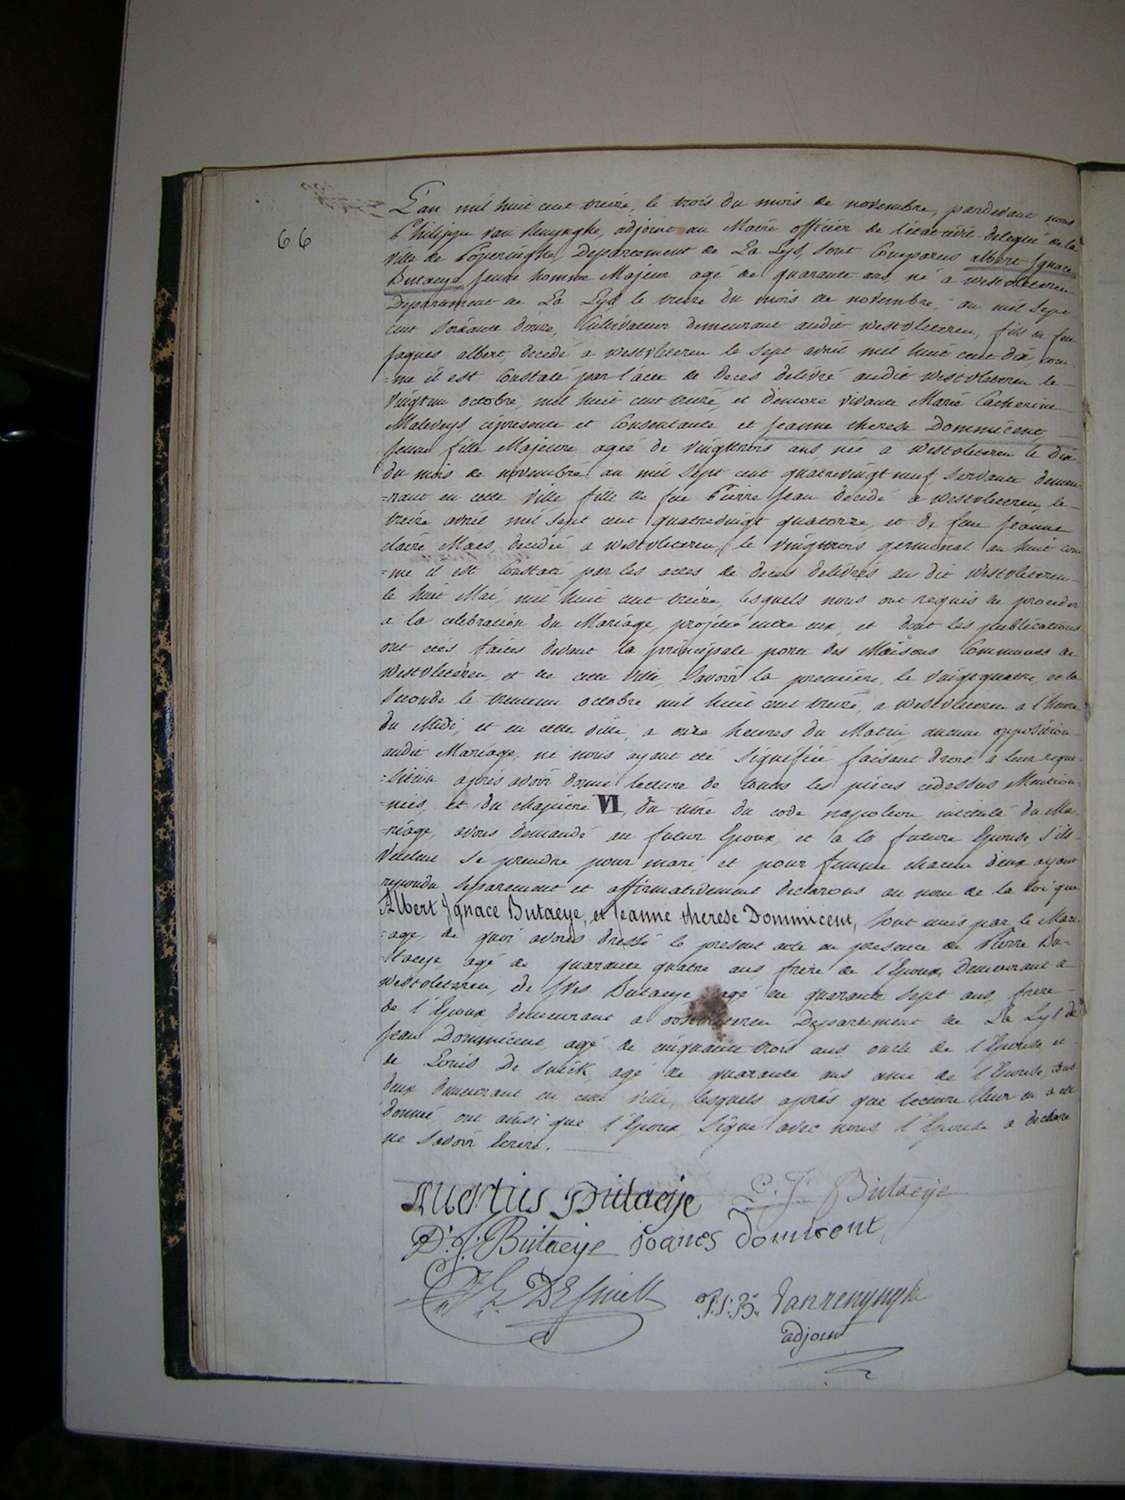 66
L'an mil huit cent treize, le trois du mois de novembre, pardevant nous
Philippe van Renynghe, adjoint au Maire officier de l'état civil délégué de la
ville de Poperinghe, Departement de La Lys, sont Comparus albert Ignace
Butaeye Jeune homme Majeur agé de quarante ans, né a westvleteren
Departement de La Lys le treize du mois de novembre, an mil sept
cent soixante douze, Cultivateur demeurant audit westvleteren, fils de feu
jaques albert, decedé a westvleteren le sept avril mil huit cent dix, com-
=me il est Constaté par l'acte de deces delivré audit westvleteren le-
vingtun octobre, mil huit cent treize, et d'encore vivante Marie Catherine
cipresente et Consentante et jeanne therese Dommicent,
jeune fille Majeure agée de vingttrois ans née a westvleteren le dix
du mois de novembre an mil sept cent quatrevingt neuf servante demeu-
=rant en cette ville fille de feu Pierre jean decedé a westvleteren le-
treize avril mil sept cent quatrevingt quatorze, et de feue jeanne
claire Maes, decedée a westvleteren, le vingttrois germinal an huit com
=me il est Constaté par les actes de deces delivrés au dit westvleteren
le huit Mai, mil huit cent treize, lesquels nous ont requis de proceder
a la celebration du Mariage, projetté entre eux, et dont les publications
ont étés faites devant la principale porte des Maisons Communes de
westvleteren, et de cette ville, savoir la premiere, le vingtquatre, et la
seconde le trenteun octobre mil huit cent treize, a westvleteren a l'heure
du Midi, et en cette ville, a onze heures du Matin, aucune opposition
audit Mariage, ne nous ayant été signifiée faisant droit a leur requi-
=sition après avoir donné lecture de toutes les pièces cidessus Mention-
=nées, et du chapitre VI, du titre du code napoleon intitulé du Ma-
riage, avons demandé au futur Epoux, et a la future Epouse, s'ils-
veulent se prendre pour mari, et pour femme chacun d'eux ayant
repondu separement et affirmativement declarons au nom de la loi que
Albert Ignace Butaeye, et Jeanne therese Dommicent, sont unis par le Mari-
=age, de quoi avons dressé le present acte en presence de Pierre Bu-
taeye agé de quarante quatre ans frere de l'Epoux, demeurant a
westvleteren, de Butaeye agé de quarante sept ans, frere-
de l'Epoux demeurant a Departement de La Lys de
jean Dommicent agé de cinquante trois ans oncle de l'Epouse, et
de Louis De agé de quarante ans ami de l'Epouse, tous
deux demeurant en cette ville, lesquels après que lecture leur en a été
donné, ont ainsi que l'Epoux signé avec nous l'Epouse a declaré
ne savoir Ecrire.
Albertus Butaeije
Butaeije
P. J. Butaeije
joanes domicent
P.J.B. Vanrenynghe
adjoint